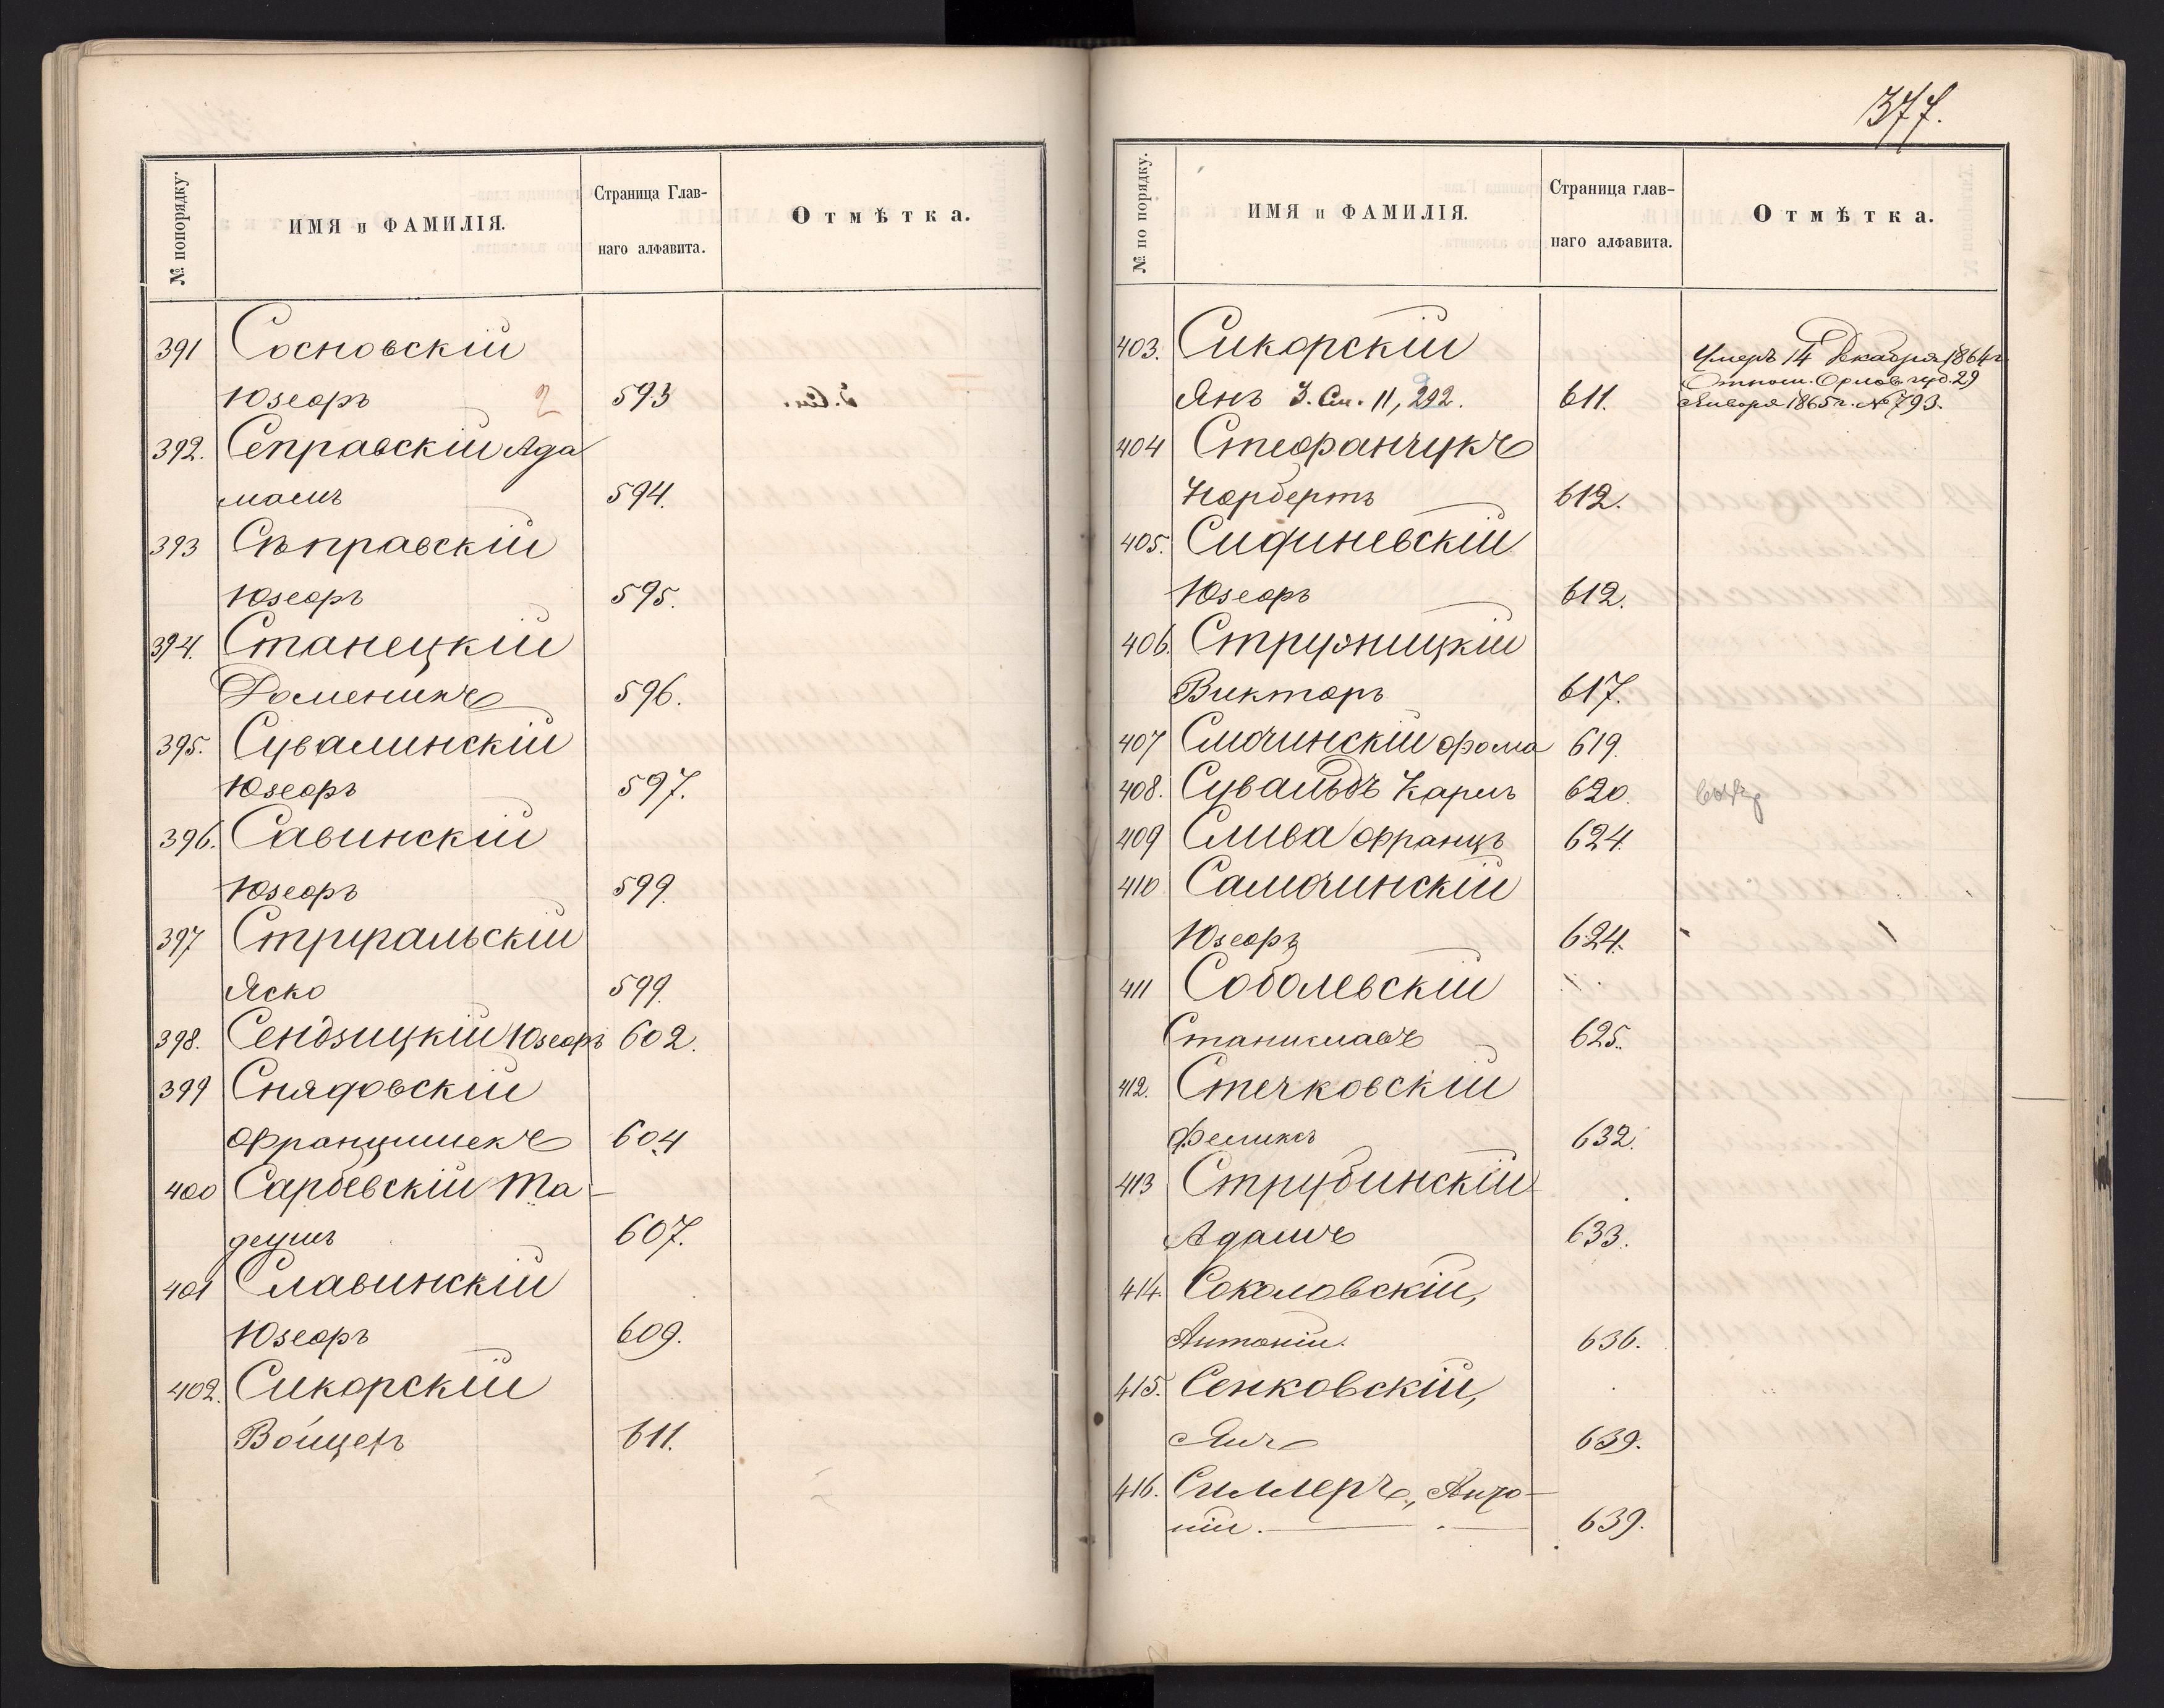 № попорядку.
ИМЯ и ФАМИЛІЯ.
Страница Глав-
наго алфавита.
Отмѣтка.
391 Сосновскій
Юзефъ 2 593
392. Сеправскій Ада
мамъ 594.
393 Сѣправскій
Юзефъ 595.
394. Станецкій
Доменикъ 596.
395. Сувалинскій
Юзефъ 597.
396. Савинскій
Юзефъ 599.
397
Яско 599.
398. Сендзицкій Юзефъ 602.
399 Снядовскій
Францишекъ 604
400 Сарбевскій Та-
деушъ 607.
401 Славинскій
Юзефъ 609.
402. Сикорскій
Войцехъ 611.
377.
№ по порядку.
ИМЯ и ФАМИЛІЯ.
Страница глав-
наго алфавита.
Отмѣтка.
403. Сикорскій
Умеръ 14 Декабря 1864 г.
Отнош. Орлов. губ. 29
Янъ З. См. 11, 292. 611. Января 1865 г. № 793.
404 Стефанчукъ
Норбертъ 612.
405. Сидиневскій
Юзефъ 612.
406. Стружницкій
Викторъ 617.
407 Смочинскій Фома 619.
408. Сувальдъ Карлъ 620.
409 Слива Францъ 624.
410 Самочинскій
Юзефъ 624.
411 Соболевскій
Станиславъ 625.
412. Стечковскій
Феликсъ 632.
413 Струбинскій
Адамъ 633.
414. Соколовскій,
Антоній. 636.
415. Сенковскій,
Янъ 639.
416. Силлеръ, Анто-
ній. 639.